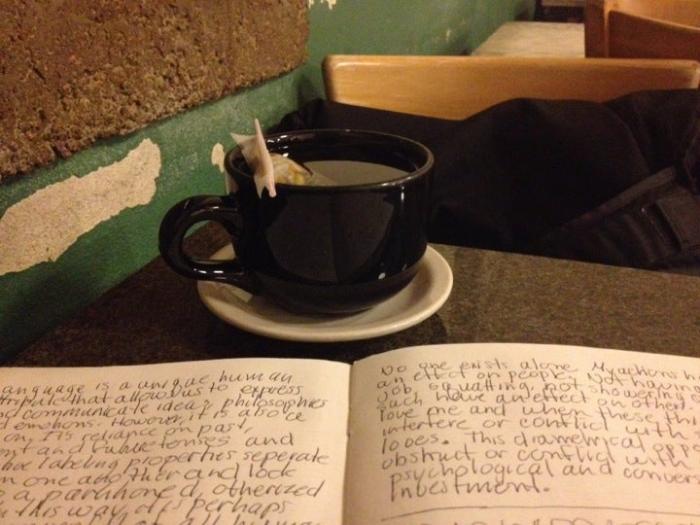 anguage is a unique human
that allows us to express
communicate ideas, philosophies
d emotions. However, it is also
on. Its reliance on past,
ent and future tenses and
labeling properties seperate
one another and lock
a parphoned, otherized
this way it is perhaps
all human
No one exists alone. My actions h
an effect on people. Not having
job, squatting, not showering
such have an effect on others
love me and when these thi
interfere or conflict with
loves. This dramatically opp
obstruct or conflict with
psychological and conver
investment.